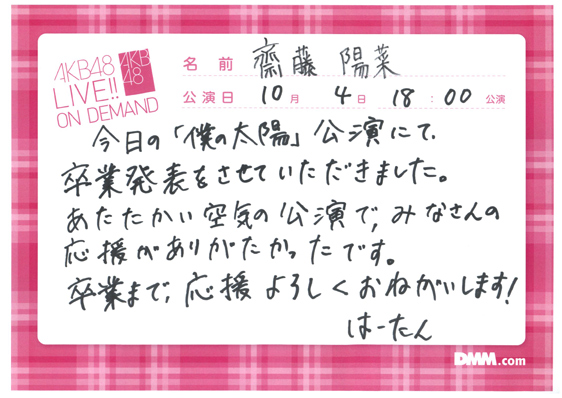 AKB48
LIVE!!
ON DEMAND
AKB
48
名前 齋藤 陽菜
公演日 10月 4日 18:00 公演
今日の「僕の太陽」公演にて、
卒業発表をさせていただきました。
あたたかい空気の公演で、みなさんの
応援がありがたかったです。
卒業まで、応援よろしくおねがいします!
はーたん
DMM.com